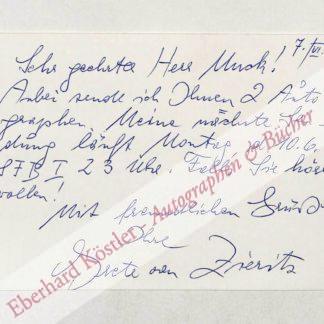 7. VI.
Sehr geehrter Herr Muck!
Anbei sende ich Ihnen 2 Auto
graphen. Meine nächste Sen
dung läuft Montag, 10.6.
SFB I 23 Uhr. Falls Sie hören
wollen!
Mit freundlichen Grüßen
Ihre
Grete von Zieritz
Eberhard Köstler Autographen & Bücher